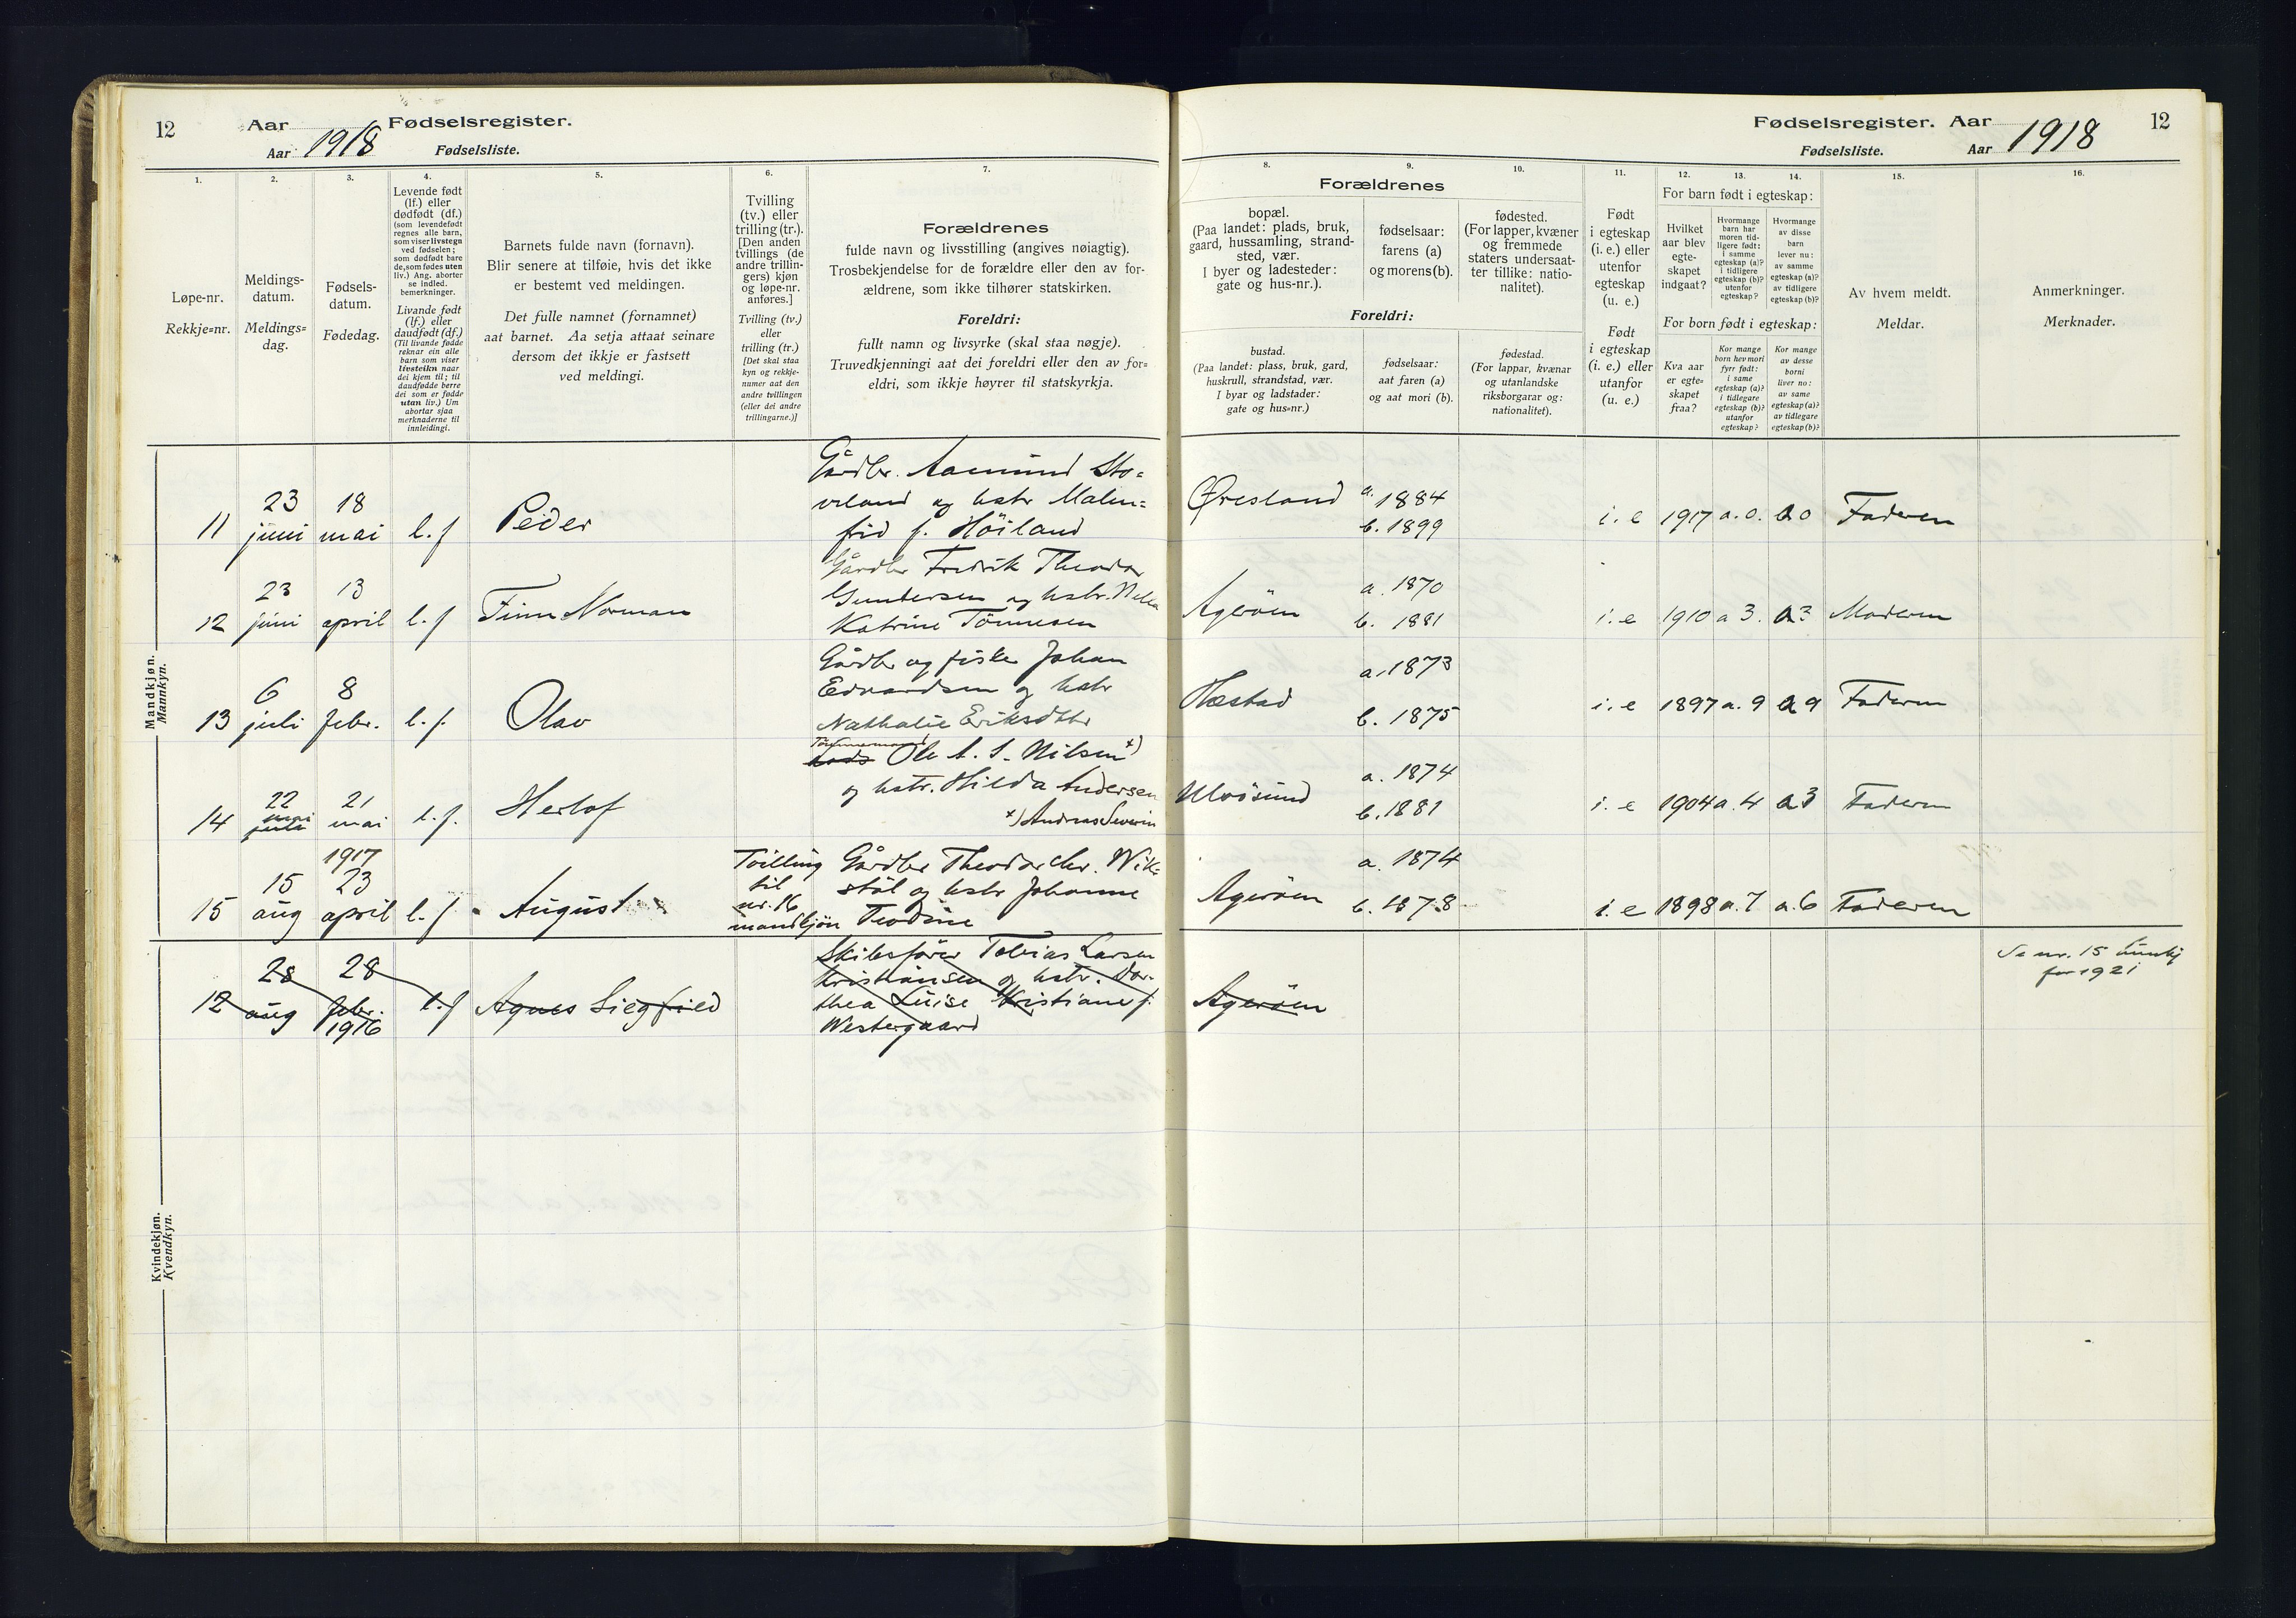 12 Aar Fødselsregister.
Aar 1918 Fødselsliste.
Fødselsregister. Aar 1918 12
Fødselsliste. Aar
1.
Løpe-nr.
Rekkje=nr.
2.
Meldings-
datum.
Meldings=
dag.
3.
Fødsels-
datum.
Fødedag.
4.
Levende født
(lf.) eller
dødfødt (df.)
(som levendefødt
regnes alle barn,
som viser livstegn
ved fødselen;
som dødfødt bare
de, som fødes uten
liv.) Ang. aborter
se indled.
bemerkninger.
Livande født
(lf.) eller
daudfødt (df.)
(Til livande fødde
reknar ein alle
barn som viser
livsteikn naar
dei kjem til; til
daudfødde berre
dei som er fødde
utan liv.) Um
abortar sjaa
merknaderne til
innleidingi.
5.
Barnets fulde navn (fornavn).
Blir senere at tilføie, hvis det ikke
er bestemt ved meldingen.
Det fulle namnet (fornamnet)
aat barnet. Aa setja attaat seinare
dersom det ikkje er fastsett
ved meldingi.
6.
Tvilling
(tv.) eller
trilling (tr.).
[Den anden
tvillings (de
andre trillin-
gers) kjøn
og løpe-nr.
anføres.]
Tvilling (tv.)
eller
trilling (tr.)
[Det skal staa
kyn og rekkje-
numer aat den
andre tvillingen
(eller dei andre
trillingarne.)]
7.
Forældrenes
fulde navn og livsstilling (angives nøiagtig).
Trosbekjendelse for de forældre eller den av for-
ældrene, som ikke tilhører statskirken.
Foreldri:
fullt namn og livsyrke (skal staa nøgje).
Truvedkjenningi aat dei foreldri eller den av for=
eldri, som ikkje høyrer til statskyrkja.
8.
Forældrenes
bopæl.
(Paa landet: plads, bruk,
gaard, hussamling, strand-
sted, vær.
I byer og ladesteder:
gate og hus-nr.).
Foreldri:
bustad.
(Paa landet: plass, bruk, gard,
huskrull, strandstad, vær.
I byar og ladstader:
gate og hus=nr.)
9.
fødselsaar:
farens (a)
og morens (b).
fødselsaar:
aat faren (a)
og aat mori (b).
10.
fødested.
(For lapper, kvæner
og fremmede
staters undersaat-
ter tillike: natio-
nalitet).
fødestad.
(For lappar, kvænar
og utanlandske
riksborgarar og:
nationalitet).
11.
Født
i egteskap
(i. e.) eller
utenfor
egteskap
(u. e.)
Født
i egteskap
(i. e.) eller
utanfor
(u. e.)
For barn født i egteskap:
12.
Hvilket
aar blev
egte-
skapet
indgaat?
13.
Hvormange
barn har
moren tid-
ligere født:
i samme
egteskap (a)?
i tidligere
egteskap (b)?
utenfor
egteskap?
14.
Hvormange
av disse
barn
lever nu:
av samme
egteskap (a)?
av tidligere
egteskap (b)?
For born født i egteskap:
Kva aar
er egte=
skapet
fraa?
Kor mange
born hev mori
fyrr født:
i same
egteskap (a)?
i tidlegare
egteskap (b)?
utanfor
egteskap?
Kor mange
av desse
borni
liver no:
av same
egteskap (a)?
av tidlegare
egteskap (b)?
15.
Av hvem meldt.
Meldar.
16.
Anmerkninger.
Merknader.
Mandkjøn.
Mannkyn.
11 23 juni 18 mai l. f Peder
Gårdbr. Aamund Sto-
veland og hstr Malm-
frid f. Höiland
Øresland a. 1884
b. 1899
i. e 1917 a. 0. a 0 Faderen
12 23 juni 13 april l. f Finn Norman
Gårdbr Fredrik Theodor
Gundersen og hstr. Nella
Katrine Tönnesen
Ageröen a. 1870
b. 1881
i. e 1910 a 3. a 3 Moderen
13 6 juli 8 febr. l. f. Olav
Gårdbr og fisker Johan
Edvardsen og hstr
Nathalie Eriksdttr
Hæstad a. 1873
b. 1875
i. e 1897 a. 9 a 9 Faderen
14 22 mai 21 mai l. f. Herlof
Tömmermand Ole A. S. Nilsen x)
og hstr. Hilda Andersen
x) Andreas Severin
Ulvösund a. 1874
b. 1881
i. e 1904 a. 4 a 3 Faderen
15 15 aug 1917 23 april l. f. August
Tvilling
til
nr. 16
mandkjön
Gårdbr Theodor Chr. Vik-
stöl og hstr Johanne
Teodine
Ageröen a. 1874
b. 1878
i. e 1898 a. 7 a. 6 Faderen
Kvindekjøn.
Kvendkyn.
12 28 aug 28 febr. 1916 l. f Agnes Siegfied
Skibsförer Tobias Larsen
Kristiansen og hstr. Dor-
thea Luise Kristiane f.
Westergaard
Ageröen
Se nr. 15
for 1921